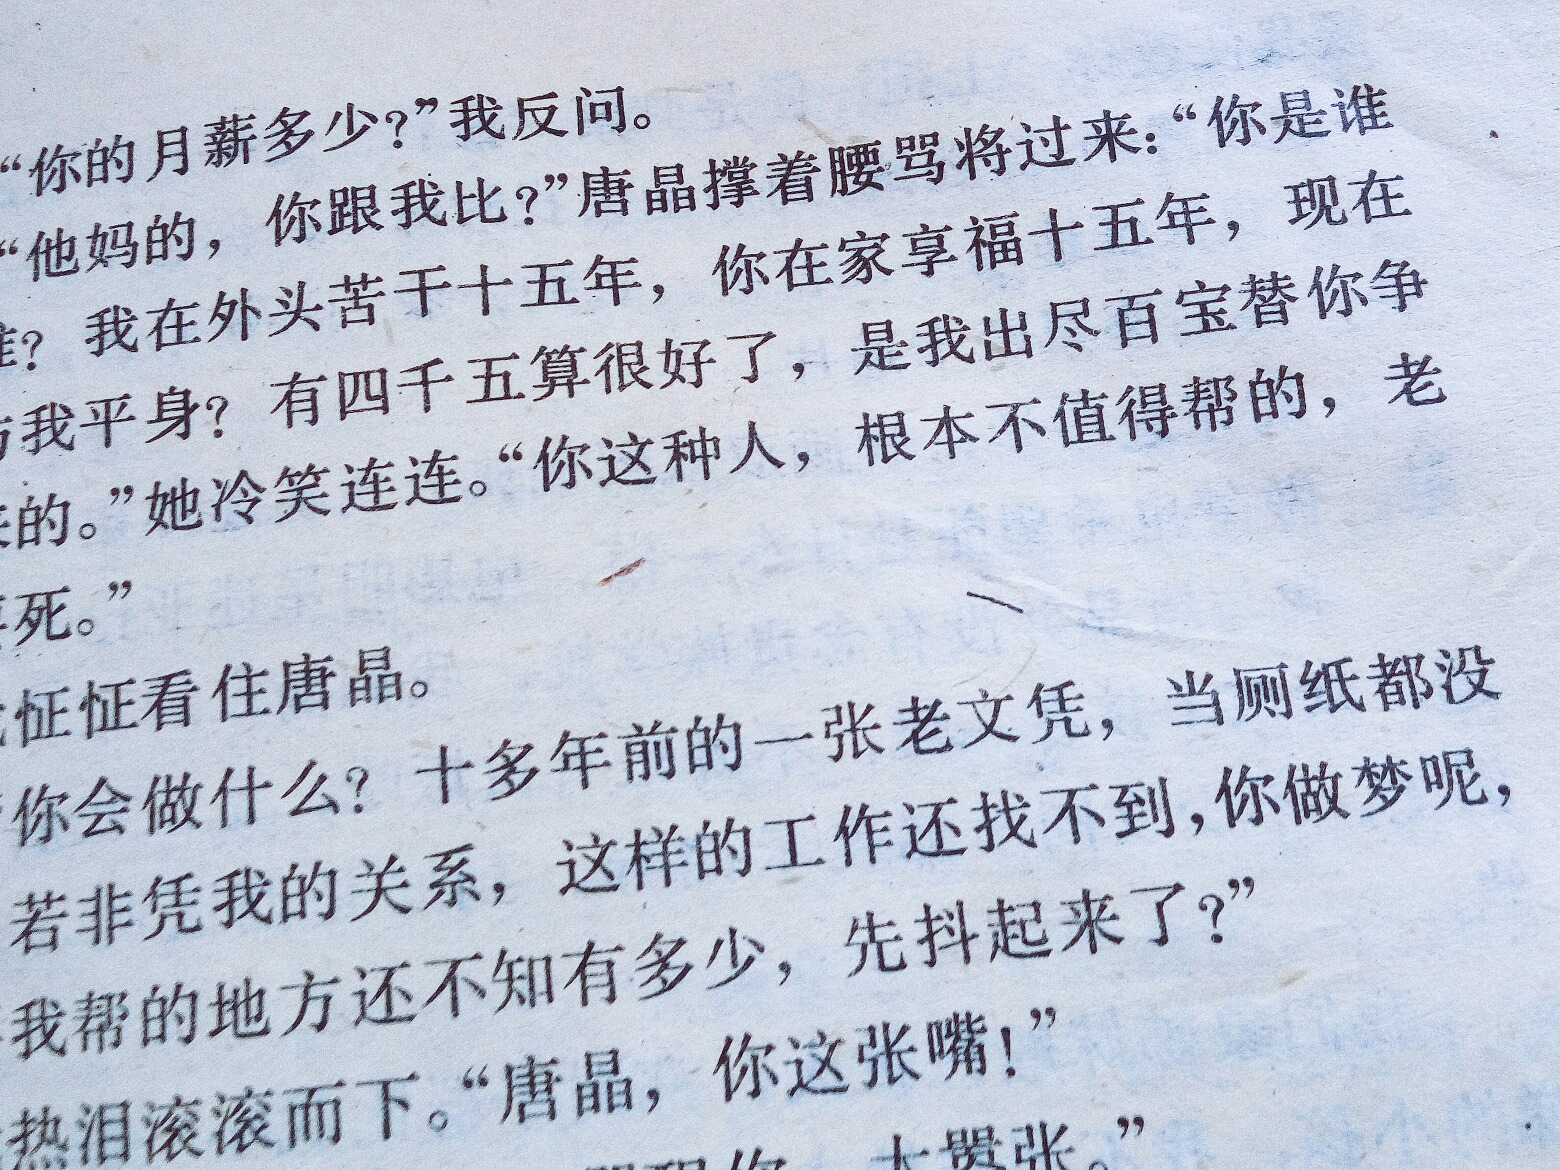 “你的月薪多少？”我反问。
“他妈的，你跟我比？”唐晶撑着腰骂将过来：“你是谁
？我在外头苦干十五年，你在家享福十五年，现在
我平身？有四千五算很好了，是我出尽百宝替你争
的。”她冷笑连连。“你这种人，根本不值得帮的，老
死。”
怔怔看住唐晶。
你会做什么？十多年前的一张老文凭，当厕纸都没
若非凭我的关系，这样的工作还找不到，你做梦呢，
我帮的地方还不知有多少，先抖起来了？”
热泪滚滚而下。“唐晶，你这张嘴！”
你，太嚣张。”